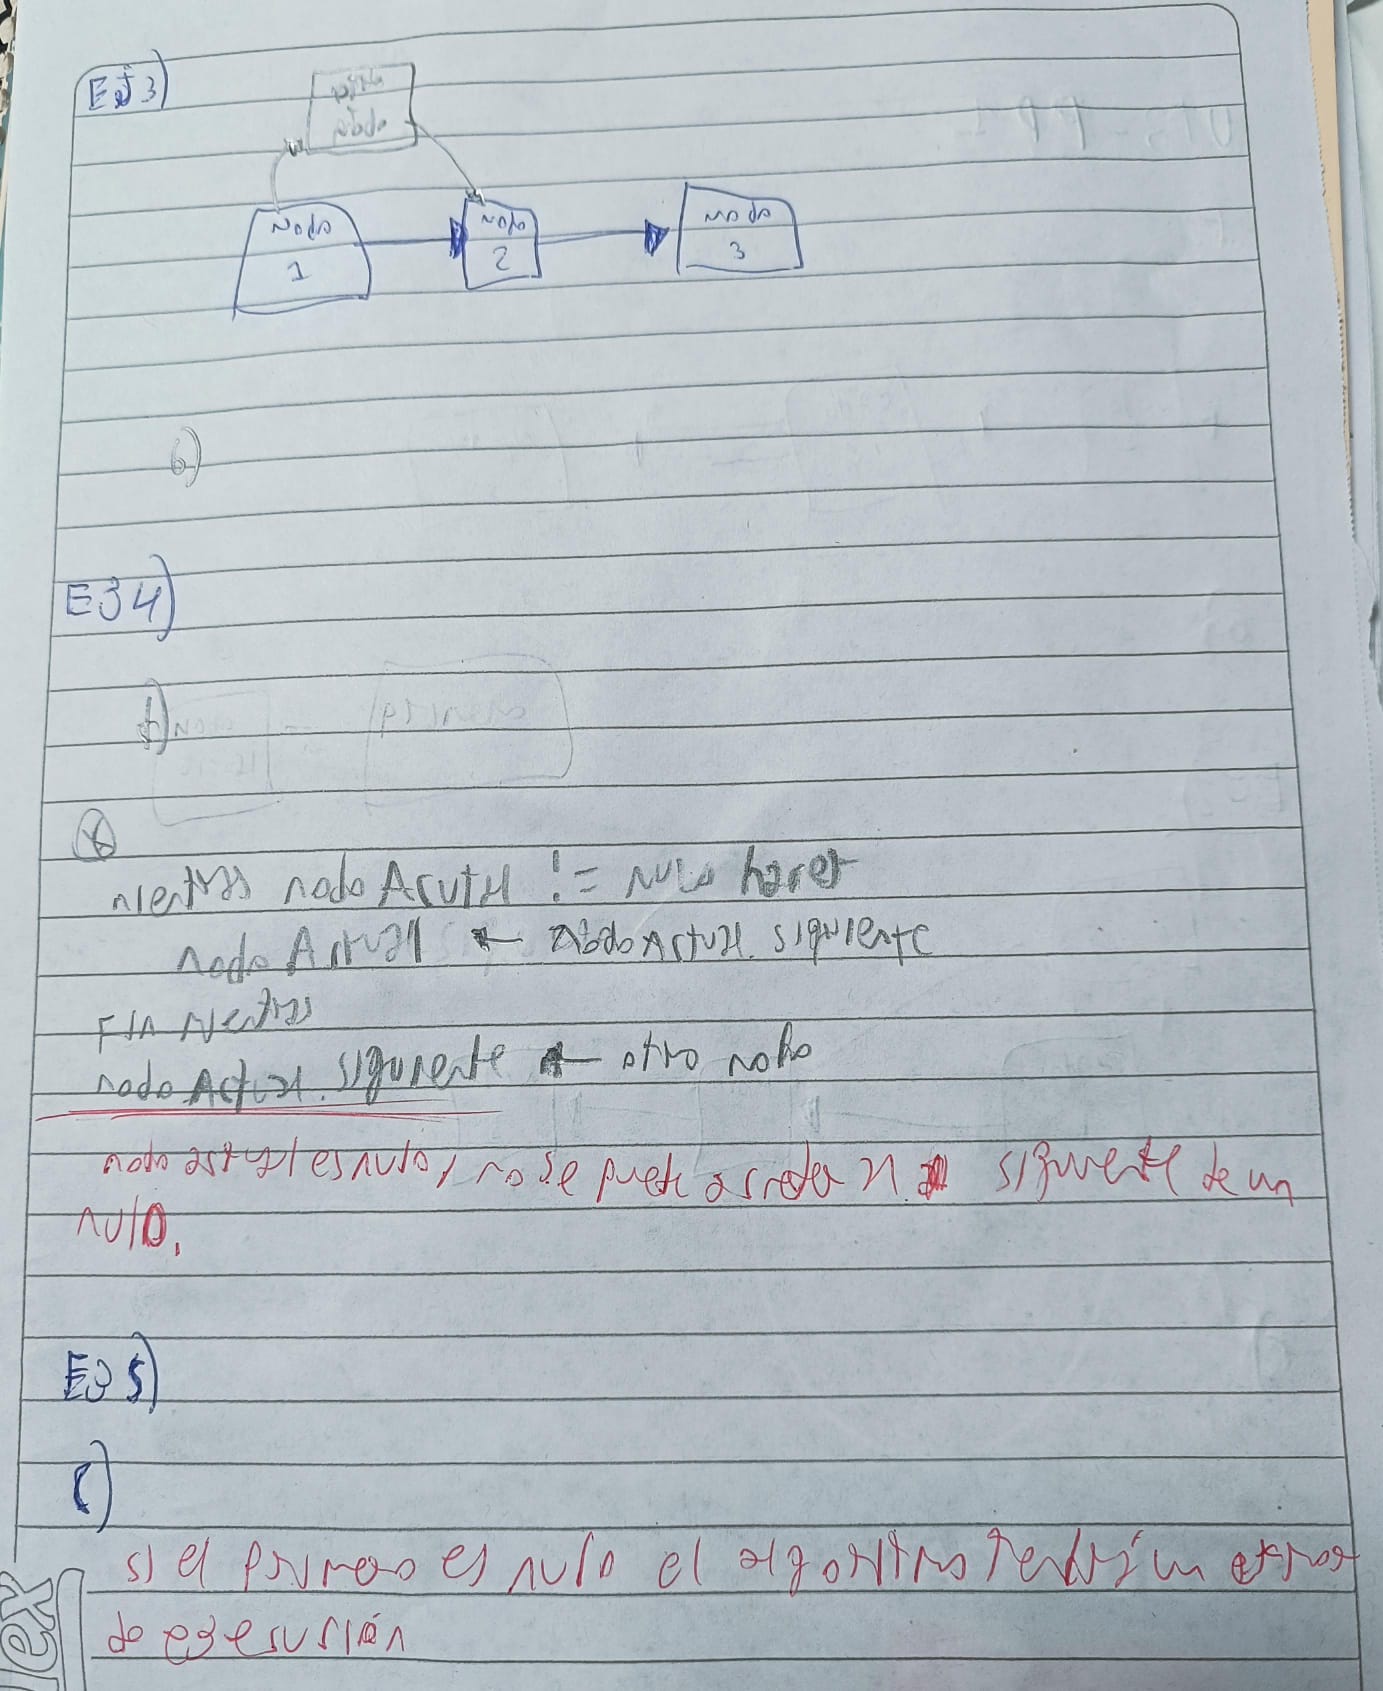 EJ3)
otro
nodo
nodo
1
nodo
2
nodo
3
b)
EJ4)
nientras nodo Acutal != nulo hacer
nodo Actual ← nodo Actual. siguiente
FIN Mientras
nodo Actual. siguiente ← otro nodo
nodo actual es nulo, no se puede acceder al siguiente de un
nulo.
EJ5)
c)
si el primero es nulo el algoritmo tendria un error
de ejesusión
lex